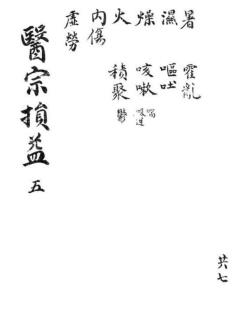 暑 霍亂
濕 嘔吐
燥 咳嗽
火 積聚
內傷
虛勞
醫宗損益 五
共七